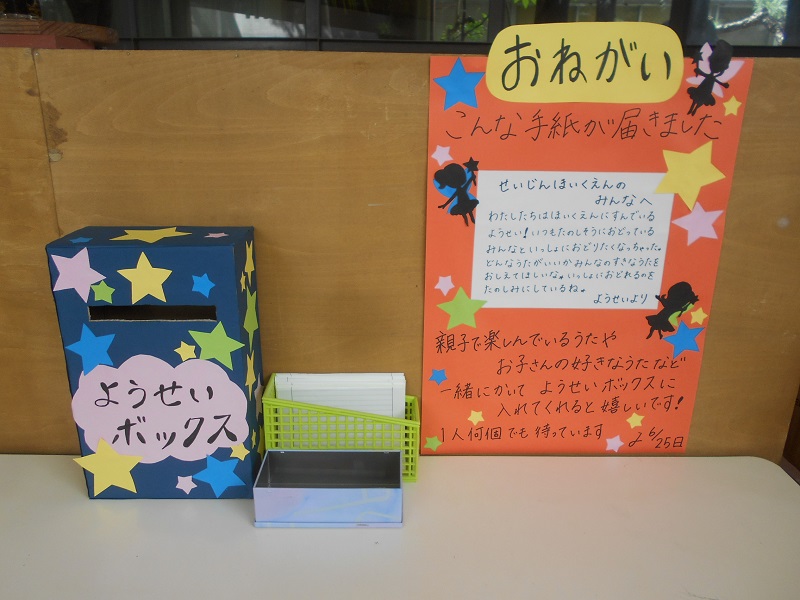 ようせい
ボックス
おねがい
こんな手紙が届きました
せいじんほいくえんの
みんなへ
わたしたちはほいくえんにすんでいる
ようせい！いつもたのしそうにおどっている
みんなといっしょにおどりたくなっちゃった。
どんなうたがいいかみんなのすきなうたを
おしえてほしいな。いっしょにおどれるのを
たのしみにしているね。
ようせいより
親子で楽しんでいるうたや
お子さんの好きなうたなど
一緒にかいて ようせいボックスに
入れてくれると嬉しいです！
1人何個でも待っています
6/25日